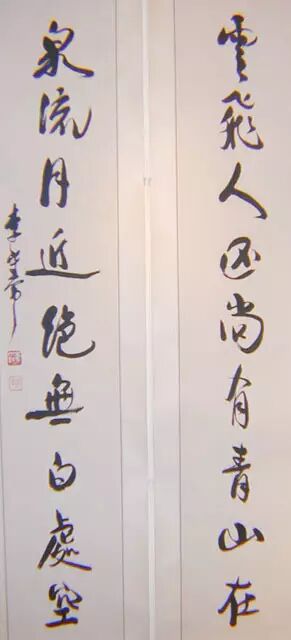 雲飛人遠尚有青山在
泉流月近絕無白處空
李